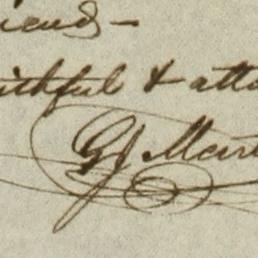 iend –
ithful & atta
GJ Mart